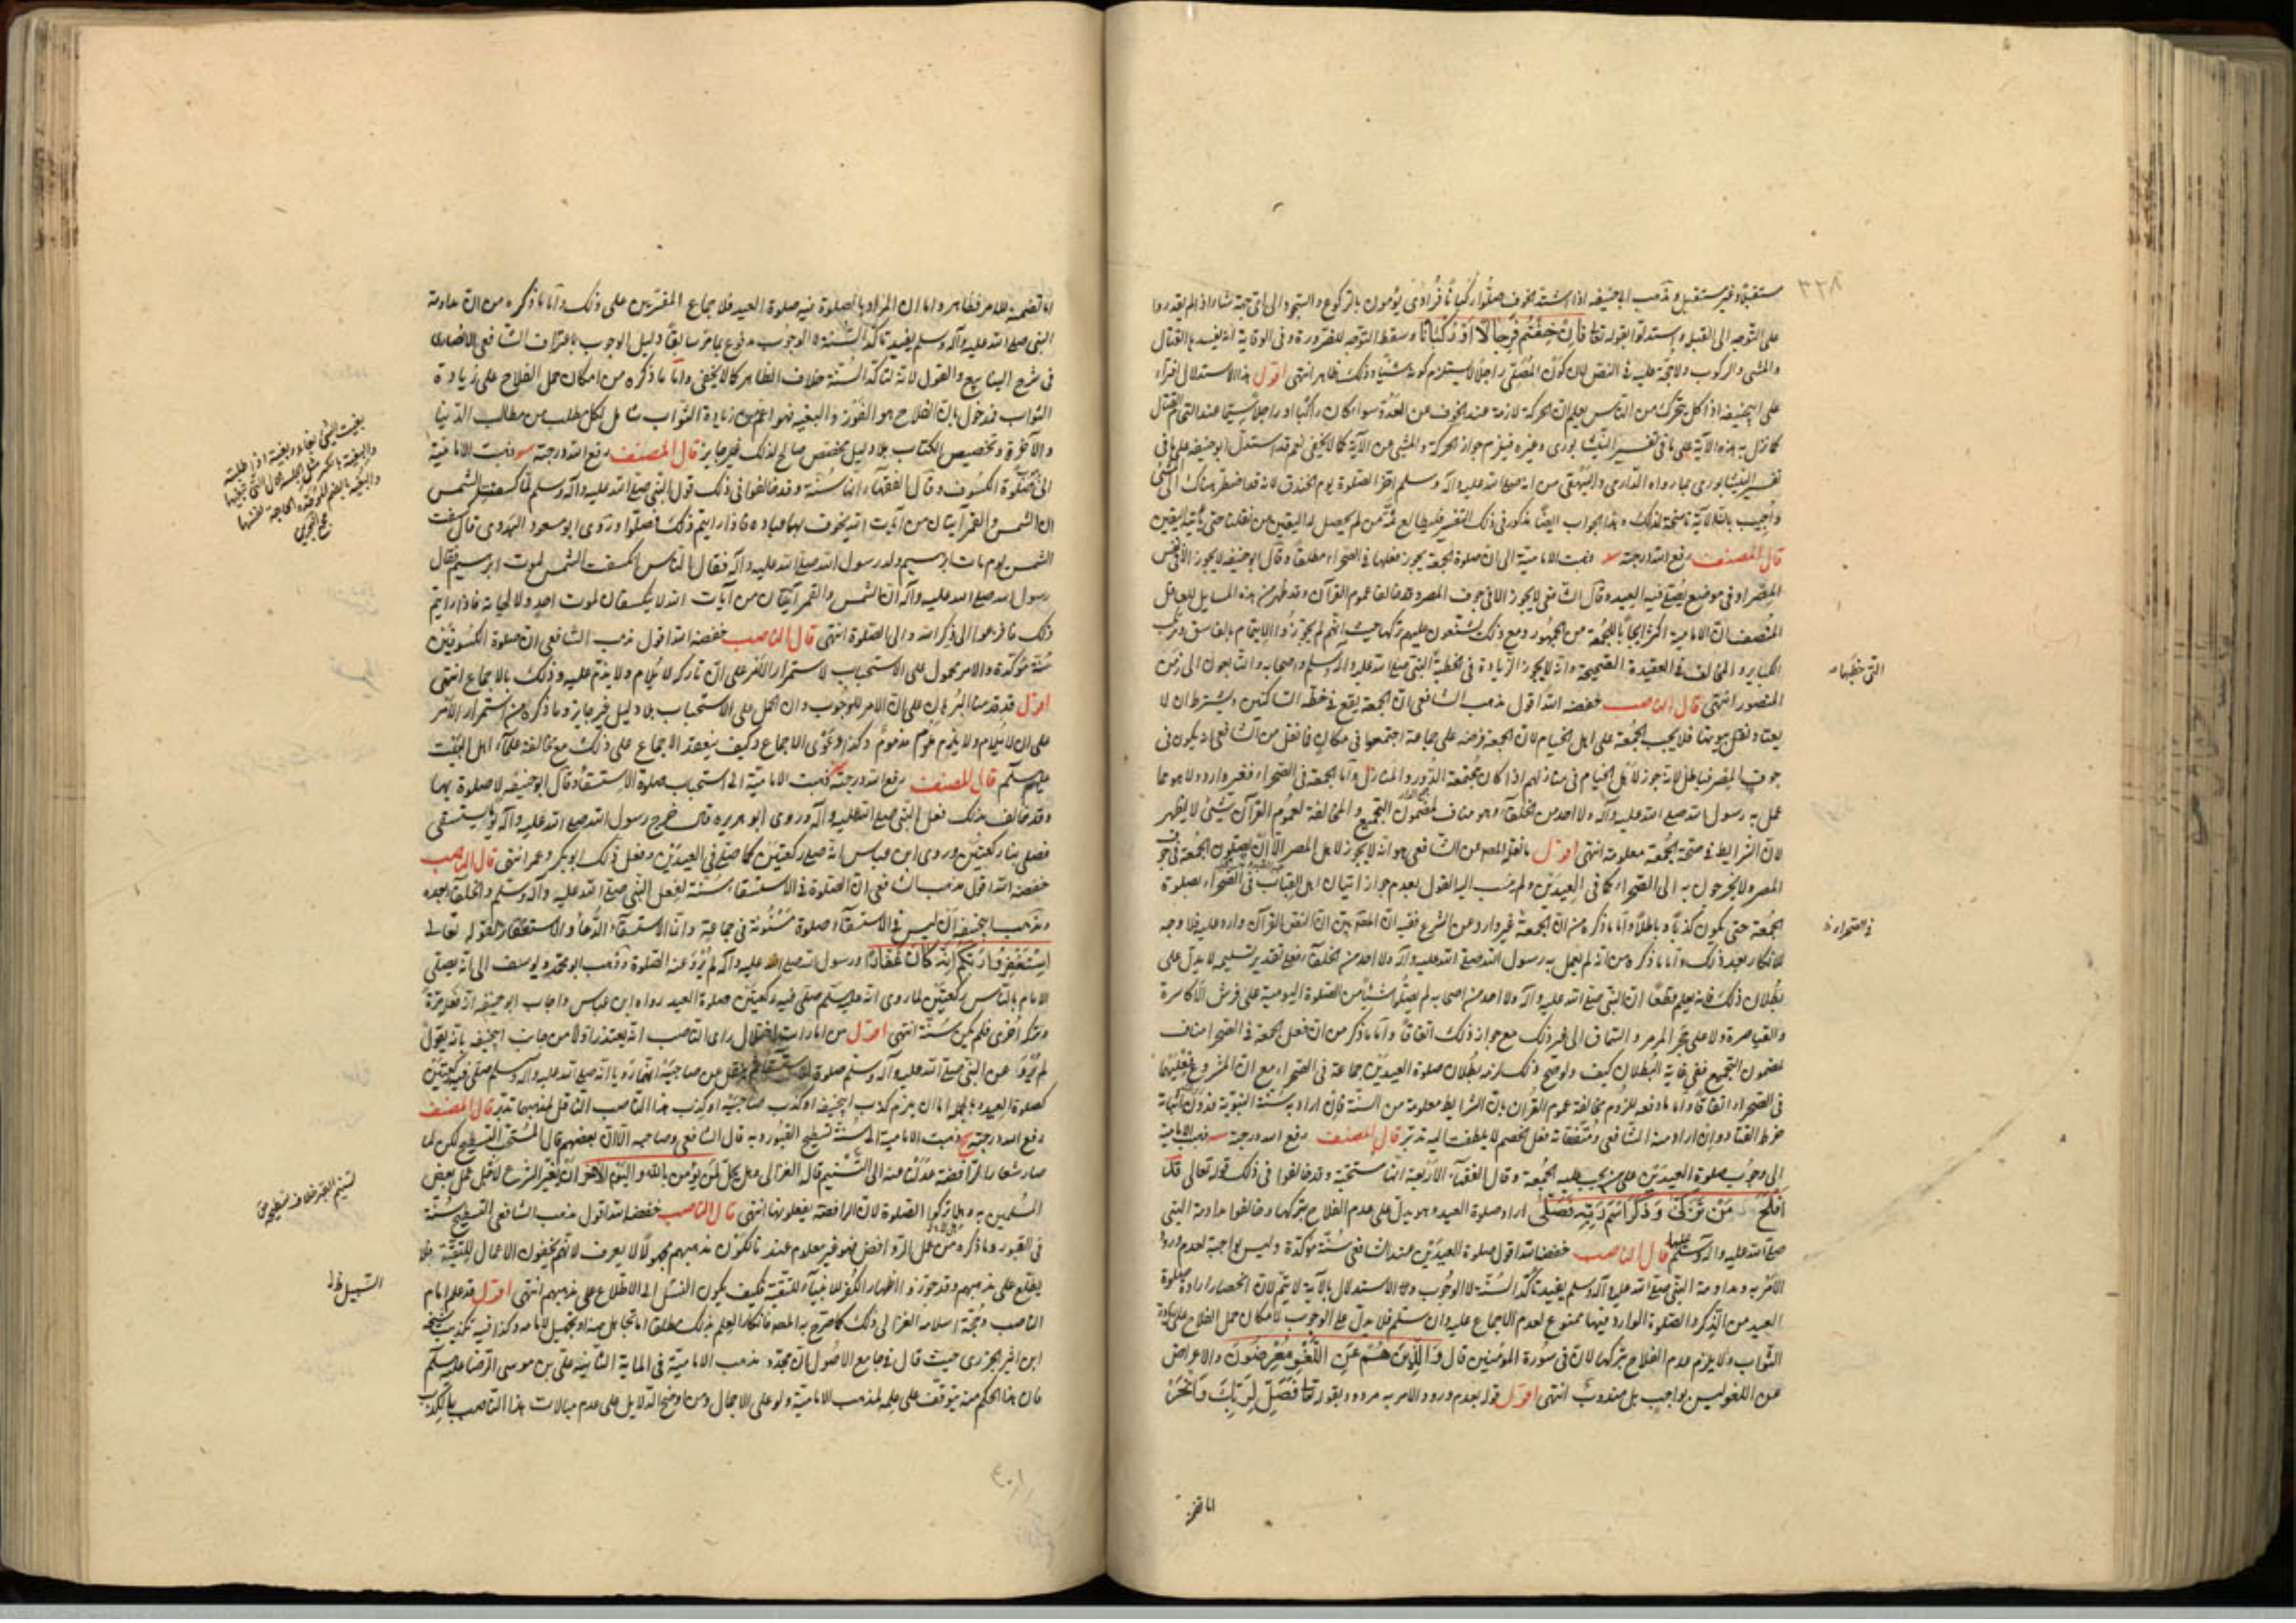 ٣٢٨
مستقبلا وغير مستقبل ومذهب ابي حنيفة اذا اشتد الخوف صلوا ركبانا فرادى يؤمون بالركوع والسجود الى اي جهة شاؤا اذا لم يقدروا
على التوجه الى القبلة واستدلوا بقوله تعالى فَإِنْ خِفْتُمْ فَرِجَالًا أَوْ رُكْبَانًا وسقط التوجه للضرورة وفي الوقاية انه يفسدها القتال
والمشي والركوب ولا حجة عليه في النص لان كون المصلي راجلا لا يستلزم كونه ماشيا وذلك ظاهر انتهى اقول هذا الاستدلال افتراء
على ابي حنيفة اذ كل متحرك من الناس يعلم ان الحركة لازمة عند الخوف من العدو سواء كان راكبا او راجلا سيما عند التحام القتال
كما نزل به هذه الآية على ما في تفسير النيشابوري وغيره فيلزم جواز الحركة والمشي من الآية كما لا يخفى نعم قد استدل ابو حنيفة على ما في
تفسير النيشابوري بما رواه الدارمي والبيهقي من انه صلى الله عليه وآله وسلم اخر الصلوة يوم الخندق
واجيب بان الآية ناسخة لذلك وهذا الجواب ايضا مذكور في ذلك التفسير فليطالع ثمة من لم يحصل له اليقين من نقلنا حتى يأتيه اليقين
قال المصنف رفع الله درجته ذهبت الامامية الى ان صلوة الجمعة يجوز فعلها في الصحراء مطلقا وقال ابو حنيفة لا يجوز الا في نفس
المصر او في موضع يصلى فيه العيد وقال الشافعي لا يجوز الا في جوف المصر وقد خالفا عموم القرآن وقد ظهر من هذه المسايل للعاقل
المنصف ان الامامية اكثر ايجابا للجمعة من الجمهور ومع ذلك يشنعون عليهم تركها حيث انهم لم يجوزوا الايتمام بالفاسق ومرتكب
الكباير والمخالف في العقيدة الصحيحة وانه لا يجوز الزيادة في الخطبة النبي صلى الله عليه وآله وسلم واصحابه والتابعون الى زمن
المنصور انتهى قال الناصب خفضه الله اقول مذهب الشافعي ان الجمعة يقع في خطة الساكنين ويشترط ان لا
على اهل الخيام لان الجمعة فرضه على جماعة اجتمعوا في مكان فما نقل من الشافعي انه يكون في
جوف المصر فباطل لانه جوز لاهل الخيام في منازلهم اذا كان مجتمعة الدور والمنازل واما الجمعة في الصحراء فغير وارد ولا هو مما
عمل به رسول الله صلى الله عليه وآله ولا احد من الخلفاء وهو مناف لمضمون التجميع والمخالفة لعموم القرآن شيء لا يظهر
لان الشرايط في صحة الجمعة معلومة انتهى اقول ما نقله المصنف عن الشافعي هو انه لا يجوز لاهل المصر الا ان يصلون الجمعة في جوف
المصر ولا يخرجون به الى الصحراء كما في العيدين ولم ينسب اليه القول بعدم جواز اتيان اهل القباب في الصحراء بصلوة
الجمعة حتى يكون كذبا وباطلا واما ما ذكره من ان الجمعة غير وارد من الشرع ففيه ان المفروض ان النص القرآن وارد عليه فلا وجه
لانكاره بعد ذلك واما ما ذكره من انه لم يعمل به رسول الله صلى الله عليه وآله ولا احد من الخلفاء فعلى تقدير تسليمه لا يدل على
بطلان ذلك فانه يعلم قطعا ان النبي صلى الله عليه وآله ولا احد من اصحابه لم يصلوا شيئا من الصلوة اليومية على فرش الاكاسرة
والقياصرة ولا على حجر المرمر والسماق الى غير ذلك مع جواز ذلك اتفاقا واما ما ذكر من ان فعل الجمعة في الصحراء مناف
لمضمون التجميع ففي غاية البطلان كيف ولو صح ذلك لزم بطلان صلوة العيدين جماعة في الصحراء مع ان المشروع فعليهما
في الصحراء اتفاقا واما ما دفعه للزوم مخالفة عموم القرآن بان الشرايط معلومة من السنة فان اراد به السنة النبوية فدون اثباته
خرط القتاد وان اراد سنة الشافعي ومتفقاته فعل الخصم لا يلتفت اليه تدبر قال المصنف رفع الله درجته ذهبت الامامية
الى وجوب صلوة العيدين على من يجب عليه الجمعة وقال الفقهاء الاربعة انها مستحبة وقد خالفوا في ذلك قوله تعالى قَدْ
أَفْلَحَ مَنْ تَزَكَّى وَذَكَرَ اسْمَ رَبِّهِ فَصَلَّى اراد صلوة العيد وهو يدل على عدم الفلاح بتركها وخالفوا مداومة النبي
صلى الله عليه وآله وسلم عليها قال الناصب خفضه الله اقول صلوة العيدين عند الشافعي سنة مؤكدة وليس بواجبة لعدم ورود
الامر به ومداومة النبي صلى الله عليه وآله وسلم يفيد تأكد السنة لا الوجوب والاستدلال بالآية لا يتم لان انحصار ارادة صلوة
العيد من الذكر والصلوة الوارد فيها ممنوع لعدم الاجماع عليه وان سلم فلا يدل على الوجوب لامكان حمل الفلاح على زيادة
الثواب ولا يلزم عدم الفلاح بتركها لان في سورة المؤمنين قال وَالَّذِينَ هُمْ عَنِ اللَّغْوِ مُعْرِضُونَ والاعراض
عن اللغو ليس بواجب بل مندوب انتهى اقول قوله بعدم ورود الامر به مردود بقوله تعالى فَصَلِّ لِرَبِّكَ وَانْحَرْ
اما تضمنه
اما تضمنه للامر فظاهر واما ان المراد بالصلوة فيه صلوة العيد فلاجماع المفسرين على ذلك واما ما ذكره من ان مداومة
النبي صلى الله عليه وآله وسلم يفيد تأكد السنة لا الوجوب مدفوع بما مر سابقا دليل الوجوب باعتراف الشافعي الانصارى
في شرح الينابيع والقول لانه لتأكد السنة خلاف الظاهر كما لا يخفى واما ما ذكره من امكان حمل الفلاح على زيادة
الثواب فمدخول بان الفلاح هو الفوز والبغية فهو اعم من زيادة الثواب شامل لكل مطلب من مطالب الدنيا
والآخرة وتخصيص الكتاب بلا دليل مخصص صالح لذلك غير جايز قال المصنف رفع الله درجته ذهبت الامامية
الى صلوة الكسوف وقال الفقهاء انها سنة وقد خالفوا في ذلك قول النبي صلى الله عليه وآله وسلم لما كسفت الشمس
ان الشمس والقمر آيتان من آيات الله يخوف بهما عباده فاذا رايتم ذلك فصلوا وروى ابو مسعود البدري قال كسفت
الشمس يوم مات ابراهيم ولد رسول الله صلى الله عليه وآله فقال الناس انكسفت الشمس لموت ابراهيم فقال
رسول الله صلى الله عليه وآله ان الشمس والقمر آيتان من آيات الله لا ينكسفان لموت احد ولا لحياته فاذا رايتم
ذلك فافزعوا الى ذكر الله والى الصلوة انتهى قال الناصب خفضه الله اقول مذهب الشافعي ان صلوة الكسوفين
سنة مؤكدة والامر محمول على الاستحباب لاستمرار الامر على ان تاركه لا يلام ولا يذم عليه وذلك بالاجماع انتهى
اقول قد قدمنا البرهان على ان الامر للوجوب وان الحمل على الاستحباب بلا دليل غير جايز وما ذكره من استمرار الامر
على ان لا يلام ولا يذم ملوم مذموم وكذا دعوى الاجماع وكيف ينعقد الاجماع على ذلك مع مخالفة علماء اهل البيت
عليهم السلام قال المصنف رفع الله درجته ذهبت الامامية الى استحباب صلوة الاستسقاء وقال ابو حنيفة لا صلوة بها
وقد خالف بذلك فعل النبي صلى الله عليه وآله وروى ابو هريرة قال خرج رسول الله صلى الله عليه وآله يوما يستسقى
فصلى بنا ركعتين وروى ابن عباس انه صلى ركعتين كما صلى في العيدين وفعل ذلك ابو بكر وعمر انتهى قال الناصب
خفضه الله اقول مذهب الشافعي ان الصلوة في الاستسقاء سنة لفعل النبي صلى الله عليه وآله وسلم والخلفاء بعده
ومذهب ابي حنيفة ان ليس في الاستسقاء صلوة مسنونة في جماعة وانما الاستسقاء الدعاء والاستغفار لقوله تعالى
اسْتَغْفِرُوا رَبَّكُمْ إِنَّهُ كَانَ غَفَّارًا ورسول الله صلى الله عليه وآله لم ترو عنه الصلوة وذهب ابو محمد ويوسف الى انه يصلي
الامام بالناس ركعتين لما روى انه عليه السلام صلى فيه ركعتين صلوة العيد رواه ابن عباس واجاب ابو حنيفة انه فعله مرة
وترك اخرى فلم يكن سنة انتهى اقول من امارات اختلال راى الناصب انه يعتذر اولا من جانب ابي حنيفة بانه يقول
لم ترو عن النبي صلى الله عليه وآله وسلم صلوة الاستسقاء ثم ينقل عن صاحبيه انهما رويا انه صلى الله عليه وآله وسلم صلى فيه ركعتين
كصلوة العيد وبالجملة اما ان يلزم كذب ابي حنيفة او كذب صاحبيه او كذب هذا الناصب الناقل لمذهبهما تدبر قال المصنف
رفع الله درجته ذهبت الامامية الى سنة تسطيح القبور وبه قال الشافعي وصاحبه الا ان بعضهم قال المستحب التسطيح لكن لما
صار شعارا للرافضة عدلنا عنه الى التسنيم قاله الغزالى وهل يحل لمن يؤمن بالله واليوم الآخر ان يغير الشرع لاجل عمل بعض
المسلمين به وهلا تركوا الصلوة لان الرافضة يفعلونها انتهى قال الناصب خفضه الله اقول مذهب الشافعي التسطيح سنة
في القبور وما ذكره من عمل الروافض فهو غير معلوم عنده لكون مذهبهم مجهولا لا يعرف لانهم يخفون الاعمال للتقية فلا
يطلع على مذهبهم وقد جوزوا اظهار الكفر للتقية فكيف يكون السبيل الى الاطلاع على مذهبهم انتهى اقول قد علم امام
الناصب وحجة اسلامه الغزالي ذلك كما صرح به المصنف فانكار العلم بذلك مطلقا اما تجاهل منه او تجهيل لامامه وكذا فيه تكذيب شيخه
ابن اثير الجزري حيث قال في جامع الاصول ان مجدد مذهب الامامية في الماية الثانية علي بن موسى الرضا عليه السلام
فان هذا الحكم منه يتوقف على علمه لمذهب الامامية ولو على الاجمال ومن اوضح الدلايل على عدم مبالات هذا الناصب بالكذب
التي خطبها
في الصحراء
بغيت الشيء بغاء وبغية اذا طلبته
والبغية بالكسر مثل الجلسة الحال التي تبغيها
والبغية بالضم الحاجة نفسها
تسنيم القبر خلاف تسطيحه
السبيل